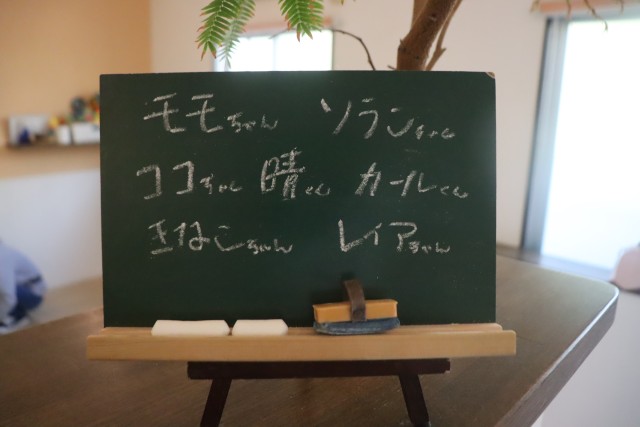 モモちゃん ソランちゃん
ココちゃん 晴くん カールくん
きなこちゃん レイアちゃん